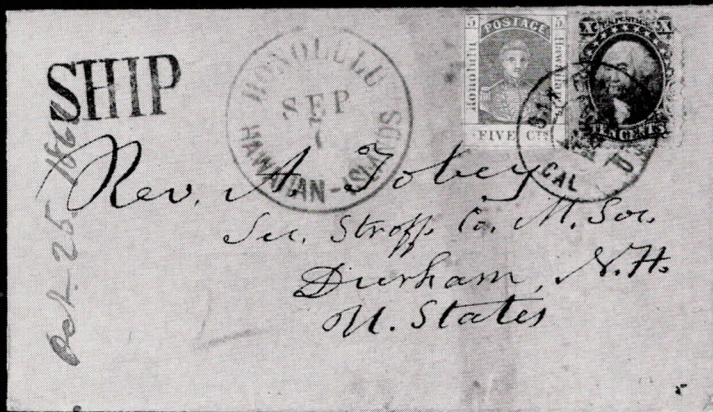 SHIP
HONOLULU
SEP
7
HAWAIIAN-ISLANDS
5 POSTAGE 5
Honolulu
Hawaiian
FIVE Cts
X X
TEN CENTS
CAL
Rev. A. Tobey
Sec. Straff. Co. M. Soc.
Durham, N.H.
U. States
Oct. 25